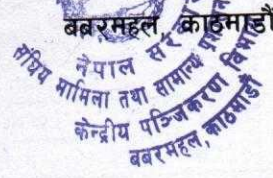 बबरमहल, काठमाडौं
नेपाल सरकार
संघिय मामिला तथा सामान्य
केन्द्रीय पञ्जिकरण विभाग
बबरमहल, काठमाडौं